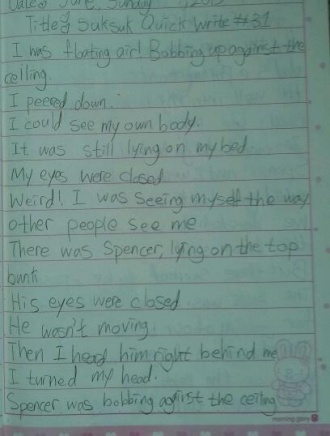 June, Sunday
Title: Suksuk Quick Write #31
I was floating air! Bobbing up against the
ceiling.
I peered down.
I could see my own body.
It was still lying on my bed.
My eyes were closed
Weird! I was seeing myself the way
other people see me
There was Spencer, lying on the top
bunk
His eyes were closed
He wasn't moving
Then I head him right behind me
I turned my head.
Spencer was bobbing against the ceiling
morning glory